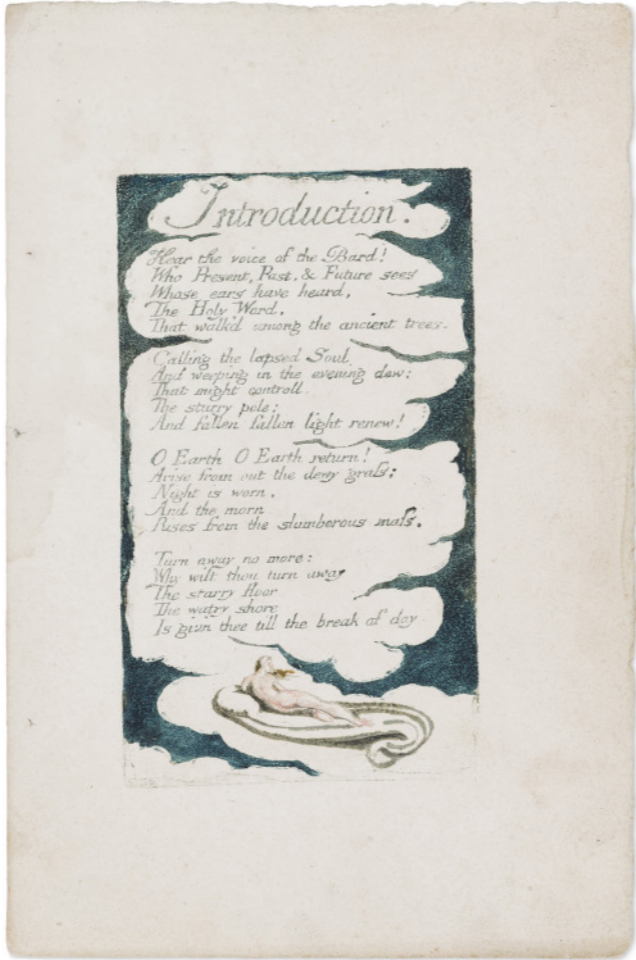 Introduction.
Hear the voice of the Bard!
Who Present, Past, & Future sees
Whose ears have heard,
The Holy Word,
That walk'd among the ancient trees.
Calling the lapsed Soul
And weeping in the evening dew:
That might controll
The starry pole;
And fallen fallen light renew!
O Earth O Earth return!
Arise from out the dewy grafs;
Night is worn,
And the morn
Rises from the slumberous mafs.
Turn away no more:
Why wilt thou turn away
The starry floor
The watry shore
Is giv'n thee till the break of day